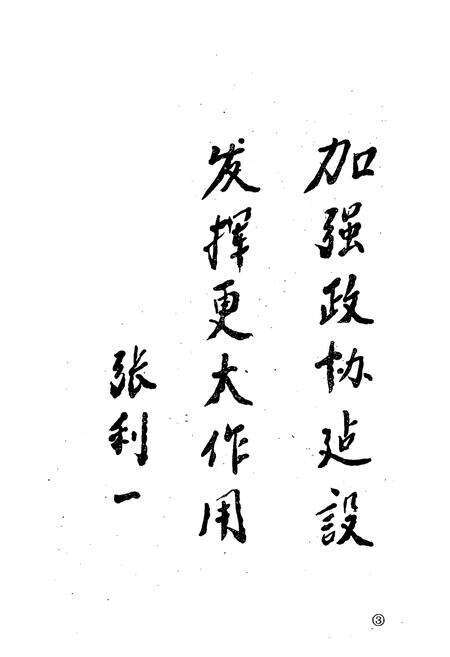 加强政协建設
发揮更大作用
張利一
③